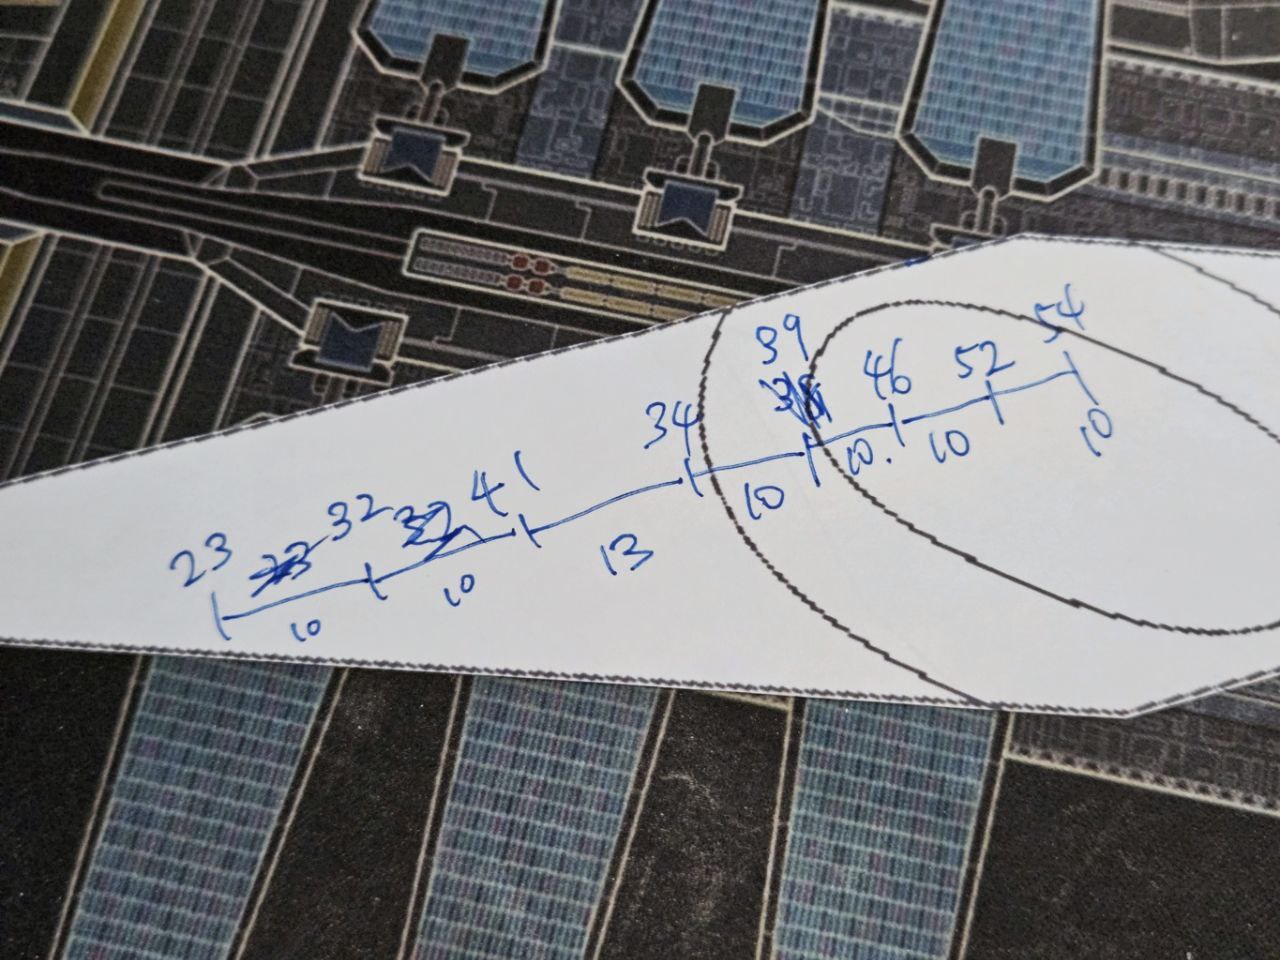 23 32 41 34 39 46 52 54
10 10 13 10 10. 10 10